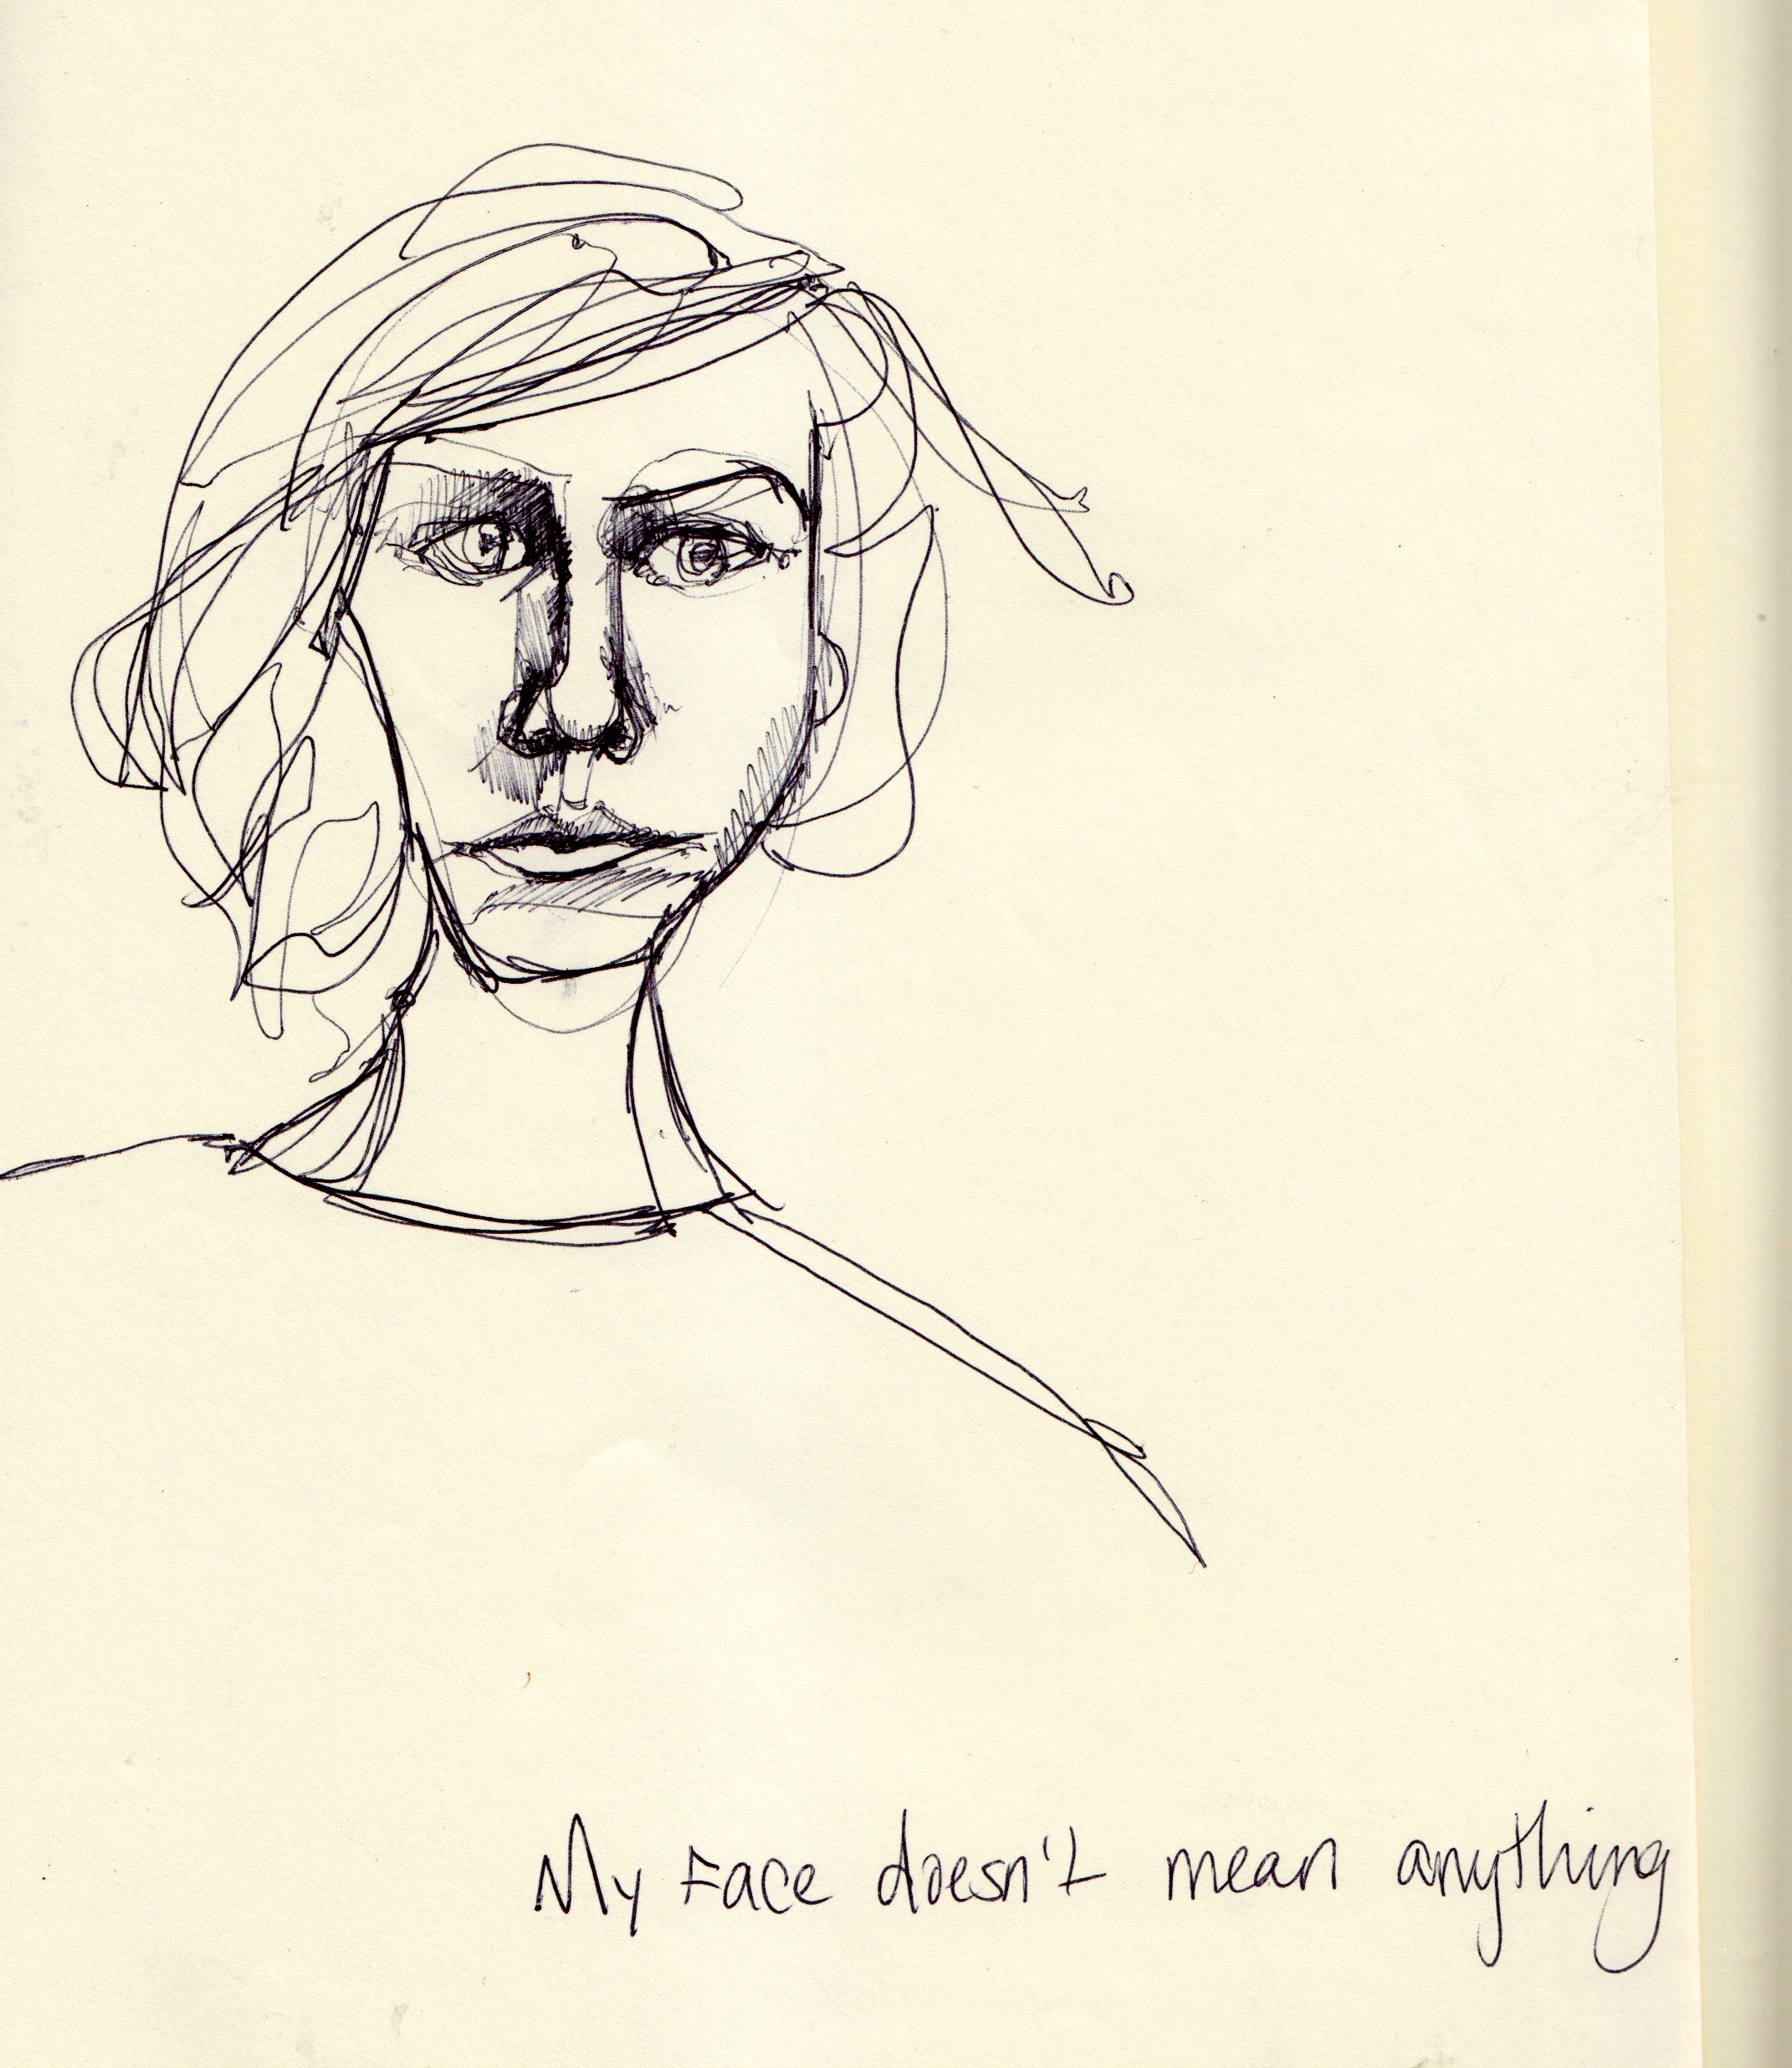 My Face doesn't mean anything